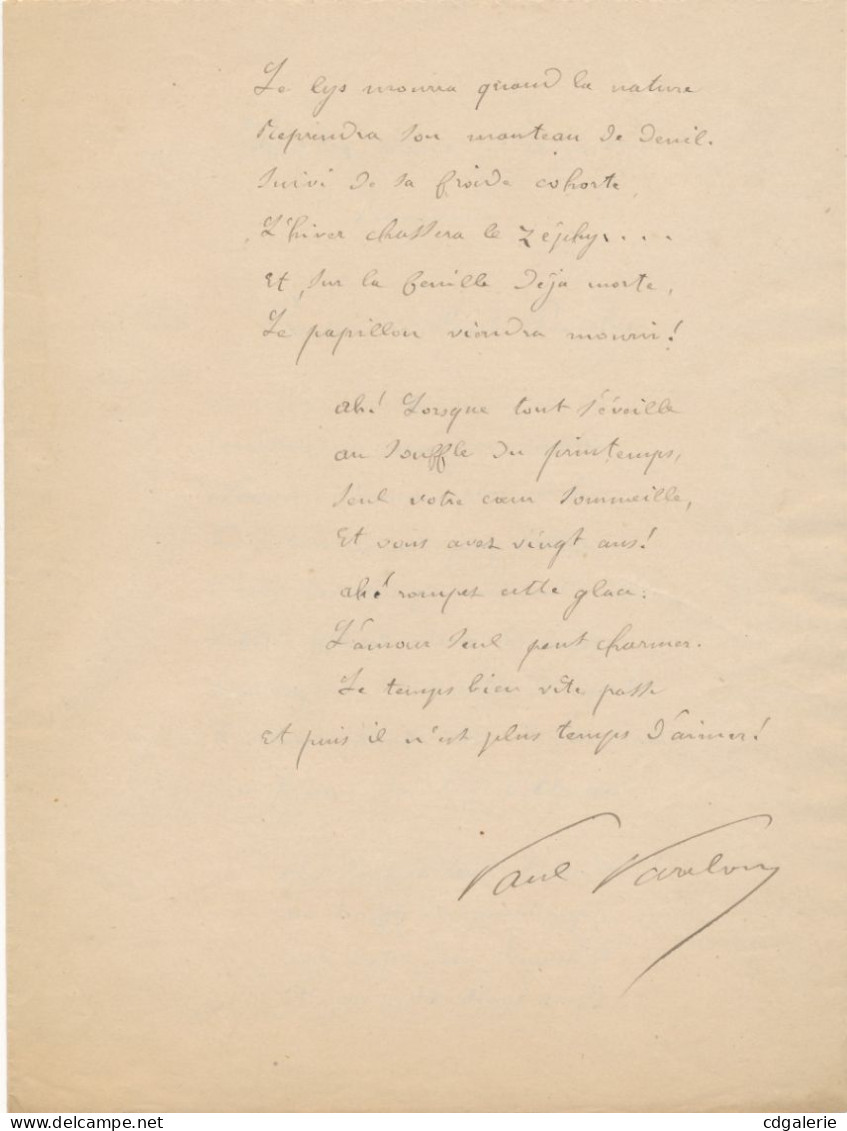 Le lys mourra quand la nature
Reprendra son manteau de deuil.
Suivi de sa froide cohorte
L'hiver chassera le zéphyr....
Et, sur la feuille déjà morte,
Le papillon viendra mourir!
ah! Lorsque tout s'éveille
au souffle du printemps,
Seul votre cœur sommeille,
Et vous avez vingt ans!
ah! rompez cette glace:
L'amour seul peut charmer.
Le temps bien vite passe
Et puis il n'est plus temps d'aimer!
Paul
delcampe.net
cdgalerie